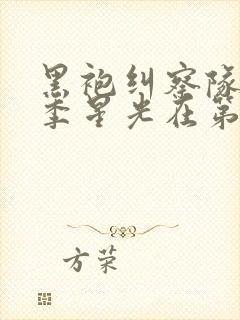 黑袍纠察队
季星光在第
方荣